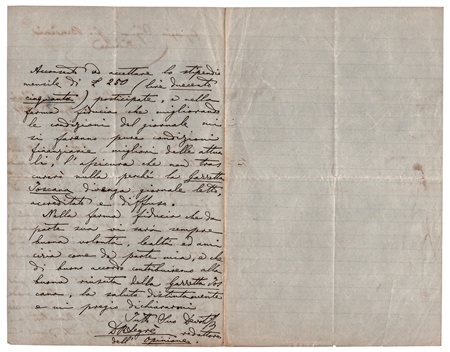 Acconsento ad accettare lo stipendio
mensile di £ 250 (lire duecento
cinquanta) partecipate, e nella
ferma fiducia che migliorando
le condizioni del giornale mi
si faranno pure condizioni
finanziarie migliori delle attua
li, l'assicura che non tras
curerò nulla perché la Gazzetta
Toscana divenga giornale letto,
accreditato e diffuso.
Nella ferma fiducia che da
parte sua vi sarà sempre
buona volontà, lealtà ed ami
cizia come da parte mia, e che
di buon accordo contribuiremo alla
buona riuscita della Gazzetta Tos
cana, la saluto distintamente
e mi pregio dichiararmi
Tutto Suo Devot
redattore
dell' Opinione.